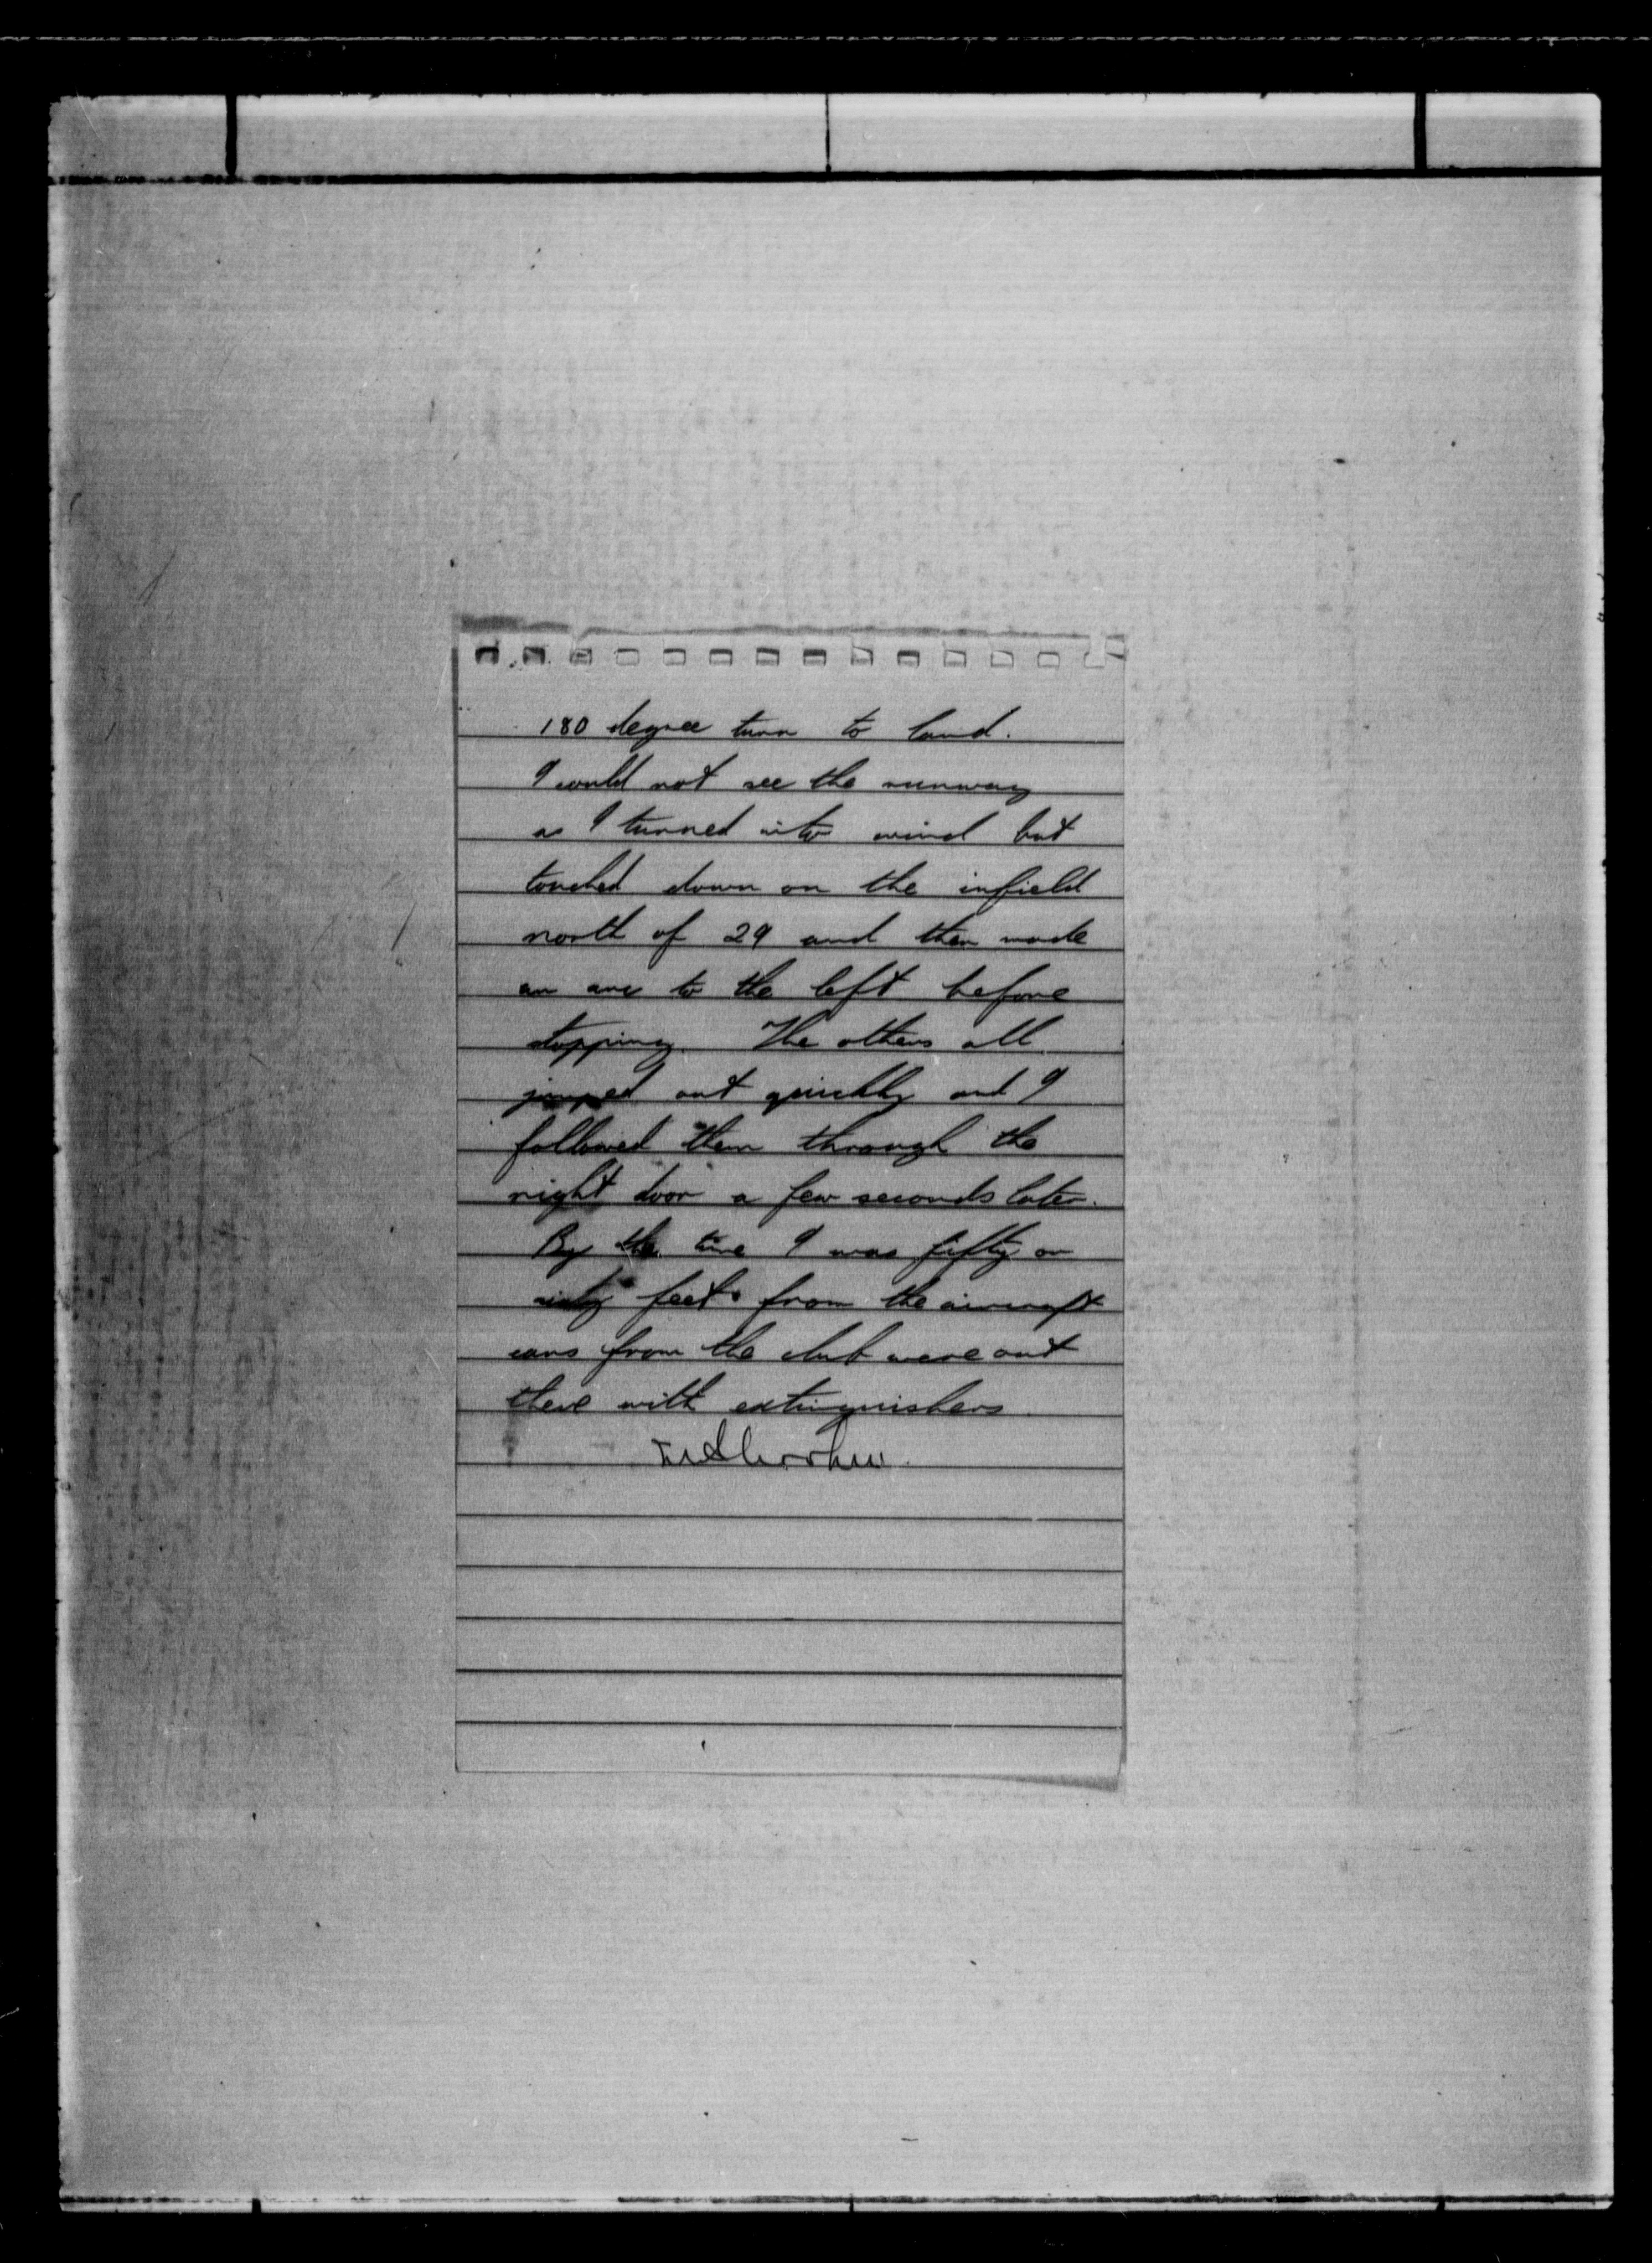 180 degree turn to land.
I could not see the runway
as I turned into wind but
touched down on the infield
north of 29 and then made
an arc to the left before
stopping. The others all
jumped out quickly and I
followed them through the
right door a few seconds later.
By the time I was fifty or
sixty feet from the aircraft
cars from the club were out
there with extinguishers.